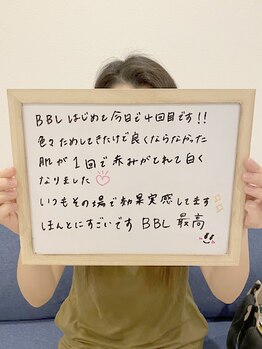 BBLはじめて今日で4回目です!!
色々ためしてきたけど良くならなかった
肌が1回で赤みがとれて白く
なりました♡
いつもその場で効果実感してます✨
ほんとにすごいです BBL 最高